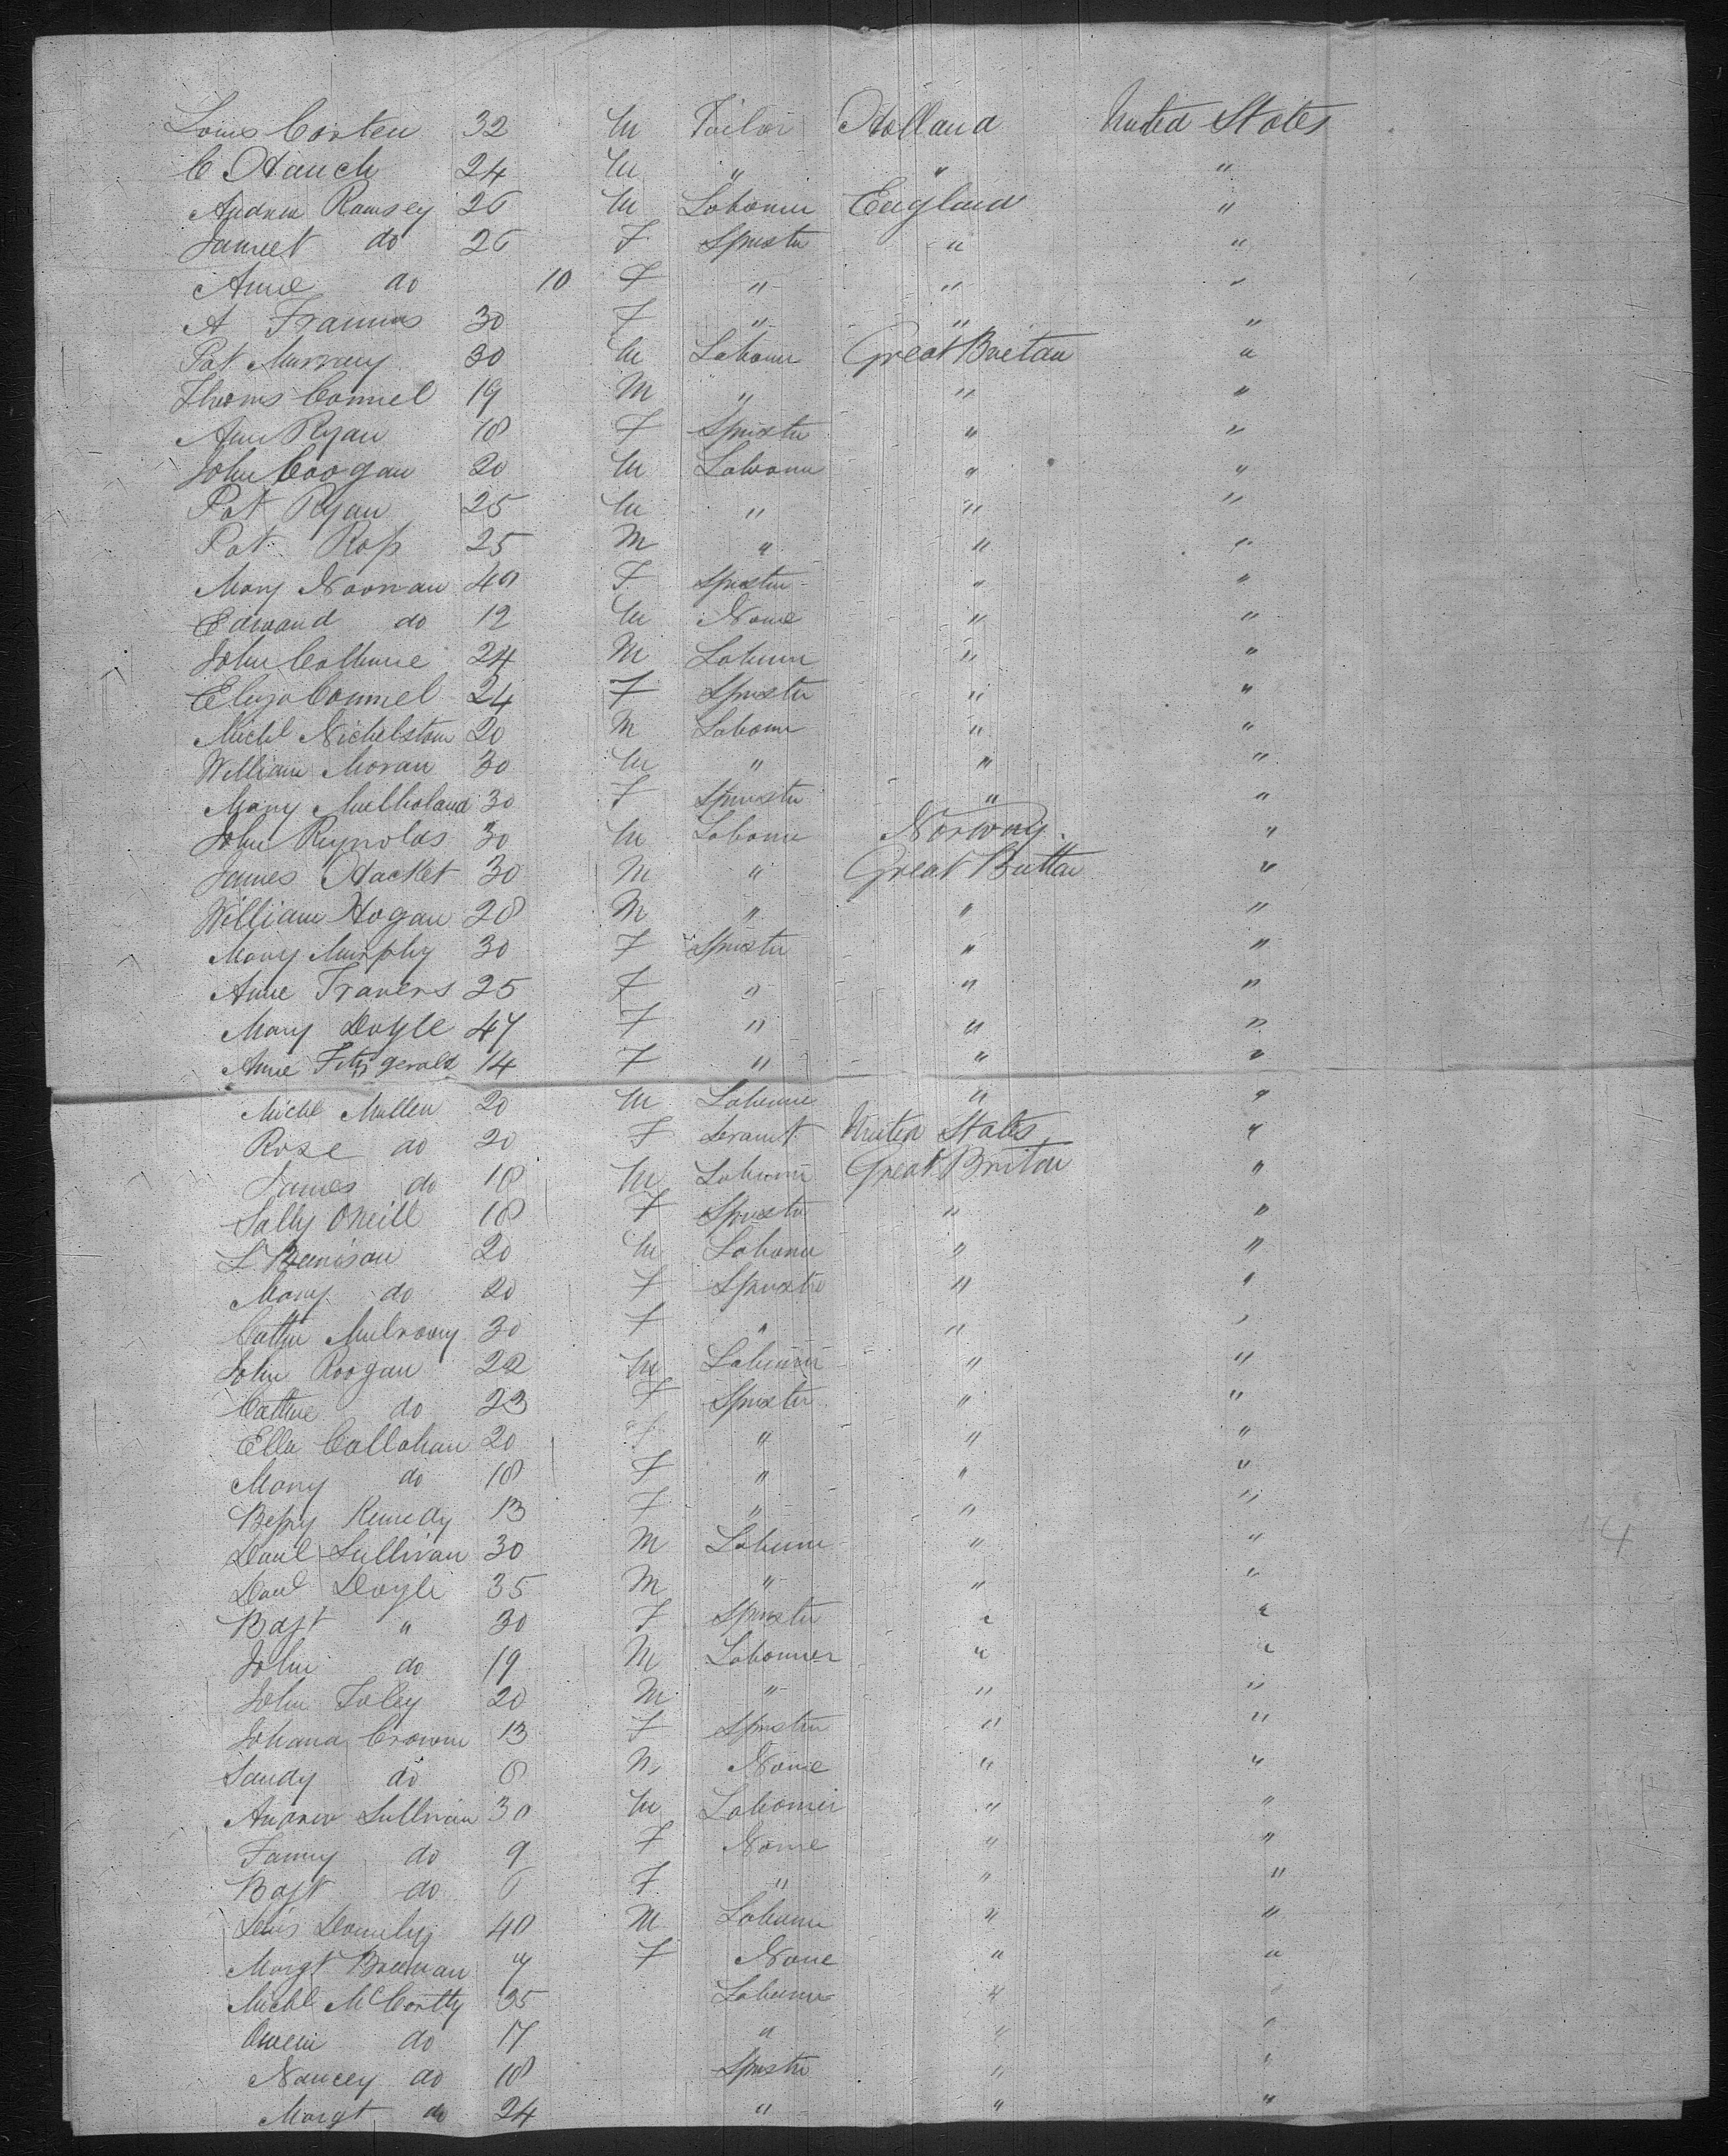 Louis Corten 32 M Tailor Holland United States
C Hauch 24 M " " "
Andrew Ramsey 26 M Labourer England "
Jannet do 26 F Spinster " "
Anne do 10 F " " "
A Frannas 30 F " " "
Pat Murray 30 M Labourer Great Britan "
Thoms Connel 19 M " " "
Ann Ryan 18 F Spinster " "
John Coogan 20 M Labourer " "
Pat Ryan 25 M " " "
Pat Ross 25 M " " "
Mary Noonan 40 F Spinster " "
Edward do 12 M None " "
John Colhune 24 M Labourer " "
Eliza Connel 24 F Spinster " "
Michl Nichelston 20 M Labourer " "
William Moran 30 M " " "
Mary Mulholand 30 F Spinster " "
John Reynolds 30 M Labourer Norway "
James Hacket 30 M " Great Brittan "
William Hogan 28 M " " "
Mary Murphy 30 F Spinster " "
Anne Travers 25 F " " "
Mary Doyle 47 F " " "
Anne Fitzgerald 14 F " " "
Michl Mullen 20 M Labourer " "
Rose do 20 F Servant United States "
James do 18 M Labourer Great Britan "
Sally ONeill 18 F Spinster " "
L Benison 20 M Labourer " "
Mary do 20 F Spinster " "
Cathn Mulroony 30 F " " "
John Roogan 22 M Labourer " "
Cathne do 23 F Spinster " "
Elln Callahan 20 F " " "
Mary do 18 F " " "
Bessy Kennedy 13 F " " "
Danl Sullivan 30 M Labourer " "
Danl Doyle 35 M " " "
Bdgt " 30 F Spinster " "
John do 19 M Labourrer " "
John Foley 20 M " " "
Johana Cronin 13 F Spinster " "
Sandy do 8 M None " "
Andrew Sullivan 30 M Labourer " "
Fanny do 9 F None " "
Bdgt do 6 F " " "
Denis Donnly 40 M Labourer " "
Margt Brennan 7 F None " "
Michl McCartty 35 Labourer " "
Owen do 17 " " "
Nancey do 18 Spinster " "
Margt do 24 " " "